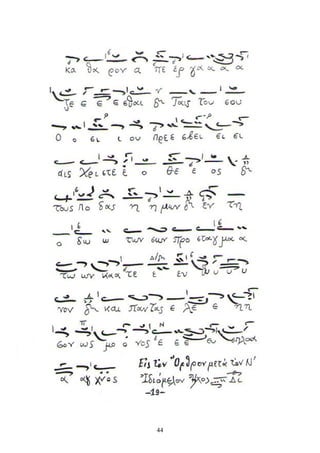 κα θα ρον α πε ερ γα α α α
ζε ε ε ε εθαι δι Ταις του σου
Ο ο ει ι ου πρε ε σβει ει ει
αις Χρι στε ε ο θε ε ος δι
τους πο δας η η μων δι εν τη
ο δω ω των σων προ σταγ μα α
τω ων και κα τε ε εν θυ υ υ
νον δι και παν τας ε λε ε ηη
σον ως μο ο νος ε ε ε ευ σπλαα
α αγ χνος Εἰς τὸν Ὄρθρον μετὰ τὸν Ν´
Ἰδιόμελον Ἦχος Δι
-19-
44